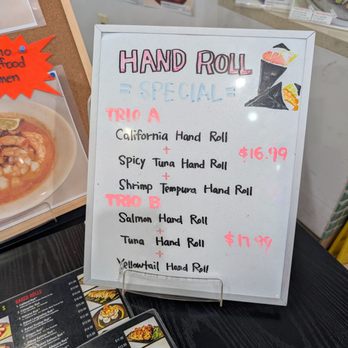 HAND ROLL
= SPECIAL =
TRIO A
California Hand Roll
+
Spicy Tuna Hand Roll
$16.99
+
Shrimp Tempura Hand Roll
TRIO B
Salmon Hand Roll
+
Tuna Hand Roll
$17.99
+
Yellowtail Hand Roll
food
men
HAND ROLLS